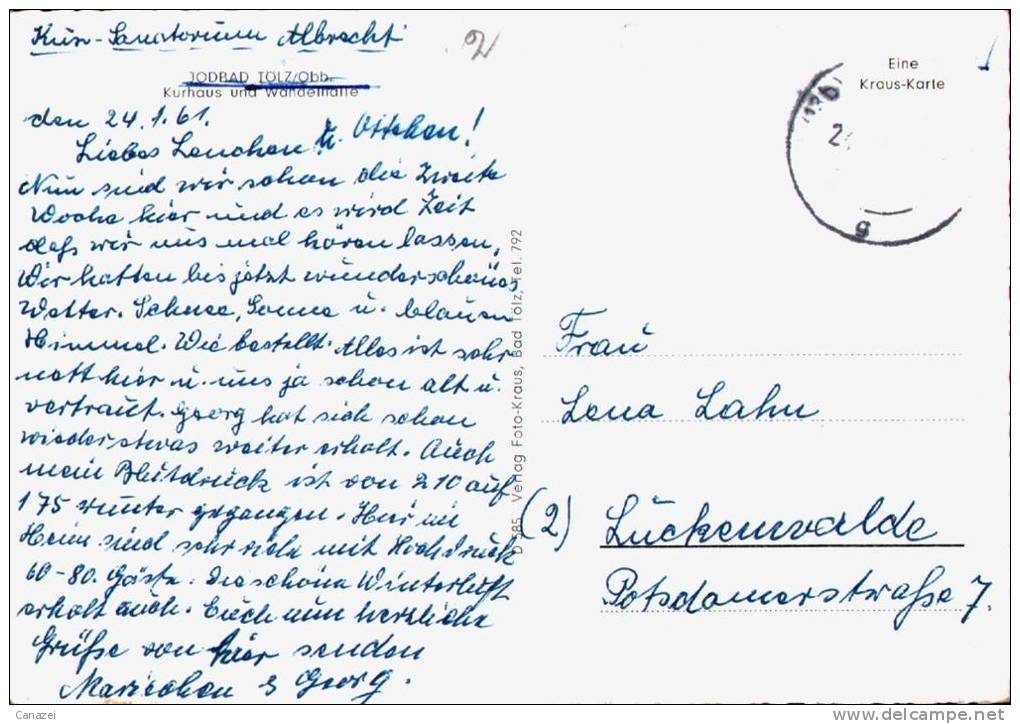 Kur-Sanatorium Albrecht
2
JODBAD TÖLZ/Obb.
Kurhaus und Wandelhalle
den 24.1.61.
Liebes Lenchen u. Ottchen!
Nun sind wir schon die zweite
Woche hier und es wird Zeit
daß wir uns mal hören lassen,
Wir hatten bis jetzt wunderschönes
Wetter. Schnee, Sonne u. blauen
Himmel. Wie bestellt. Alles ist sehr
nett hier u. uns ja schon alt u.
vertraut. Georg hat sich schon
wieder etwas weiter erholt. Auch
mein Blutdruck ist von 210 auf
175 runter gegangen. Hier im
Heim sind sehr viele mit Hochdruck
60-80. Gäste. Die schöne Winterluft
erholt auch. Euch nun herzliche
Grüße von hier senden
Mariechen & Georg.
D 585 Verlag Foto-Kraus, Bad Tölz, Tel. 792
Eine
Kraus-Karte
Frau
Lena Lahn
(2) Luckenwalde
Potsdamerstraße 7.
Canazei
http://www.delcampe.net